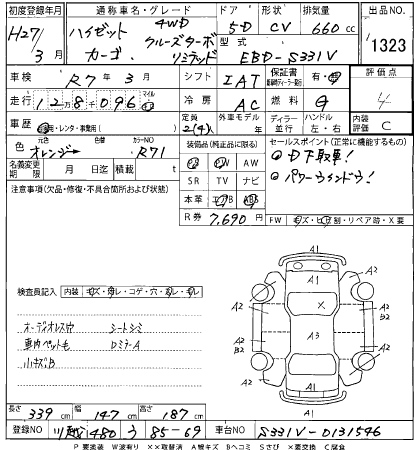 初度登録年月 通称車名・グレード ドア 形状 排気量 出品NO
H27/3月 ハイゼットカーゴ 4WD クルーズターボリミテッド 5D CV 660cc 1323
型式 EBD-S331V
車検 R7年3月 シフト IAT 保証書 有・無 評価点 4
走行 12万8096 マイル 冷房 AC 燃料 ガ 内装評価 C
車歴 自家・レンタ・事業用( ) 定員 2(4)人 外車モデル年 ディーラー 並行 ハンドル 左・右
色 元色 オレンジ 色替 カラーNO R71
装備品(純正品に限る) PS PW AW SR TV ナビ 本革 エアB ABS
セールスポイント(正常に機能するもの)
◎ 下取車!
◎ パワーウインドウ!
名義変更期限 月 日迄 積載 t
R券 7,690円
FW キズ・ヒビ割・リペア跡・X要
注意事項(欠品・修復・不具合箇所および状態)
検査員記入 内装 キズ・汚レ・コゲ・穴
オーディオレス シートシミ
車内ペット毛
小キズB
A1 A2 A2 A2 A2 B2 A2 B2 X A3 A2 A2 A1
長さ 339cm 幅 147cm 高さ 187cm
登録NO 480 う 85-69 車台NO S331V-0131546
P要塗装 W波有り ××取替済 A線キズ Bヘコミ Sさび ×要交換 C腐食